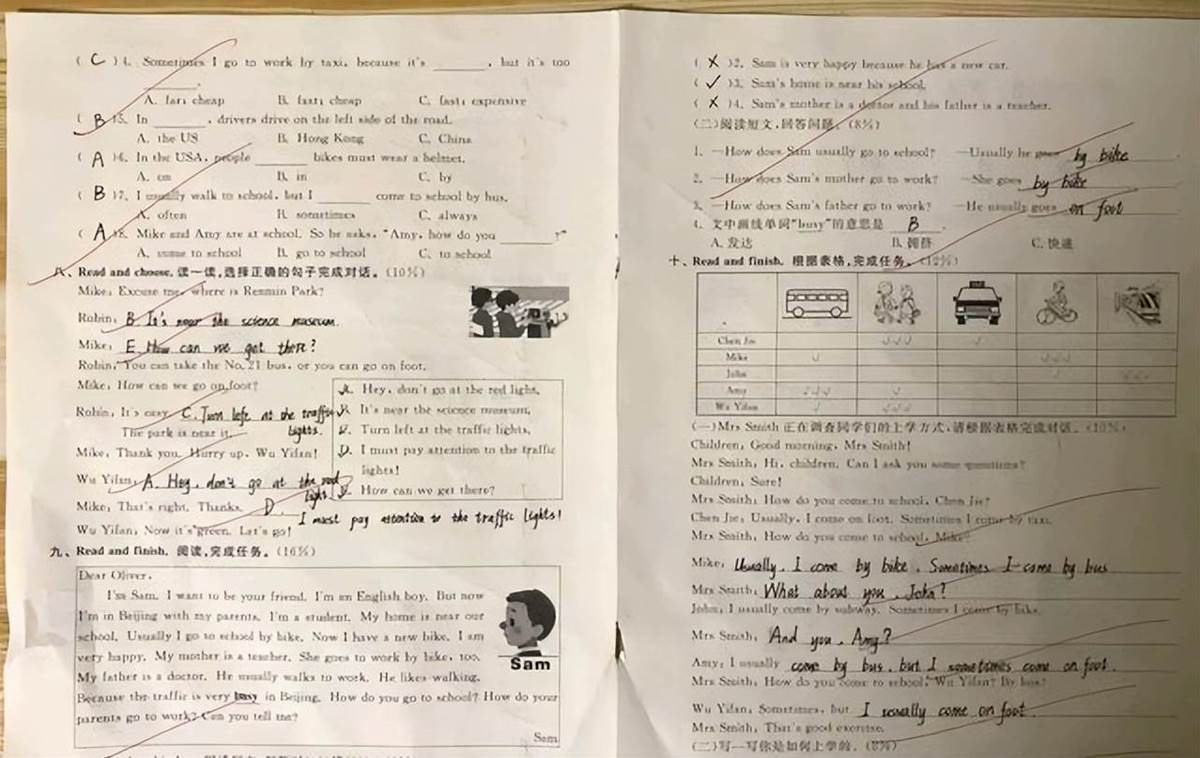 ( C ) 4. Sometimes I go to work by taxi, because it's ______, but it's too
______.
A. far; cheap B. fast; cheap C. fast; expensive
( B )5. In ______, drivers drive on the left side of the road.
A. the US B. Hong Kong C. China
( A )6. In the USA, people ______ bikes must wear a helmet.
A. on B. in C. by
( B )7. I usually walk to school, but I ______ come to school by bus.
A. often B. sometimes C. always
( A )8. Mike and Amy are at school. So he asks, "Amy, how do you ______?"
A. come to school B. go to school C. to school
八、Read and choose. 读一读,选择正确的句子完成对话。(10%)
Mike: Excuse me, where is Renmin Park?
Robin: B. It's near the science museum.
Mike: E. How can we get there?
Robin: You can take the No. 21 bus, or you can go on foot.
Mike: How can we go on foot?
Robin: It's easy. C. Turn left at the traffic
lights.
The park is near it.
Mike: Thank you. Hurry up, Wu Yifan!
Wu Yifan: A. Hey, don't go at the red
light.
Mike: That's right. Thanks. D.
I must pay attention to the traffic lights!
Wu Yifan: Now it's green. Let's go!
A. Hey, don't go at the red light.
B. It's near the science museum.
C. Turn left at the traffic lights.
D. I must pay attention to the traffic
lights!
E. How can we get there?
九、Read and finish. 阅读,完成任务。(16%)
Dear Oliver,
I'm Sam. I want to be your friend. I'm an English boy. But now
I'm in Beijing with my parents. I'm a student. My home is near our
school. Usually I go to school by bike. Now I have a new bike. I am
very happy. My mother is a teacher. She goes to work by bike, too.
My father is a doctor. He usually walks to work. He likes walking.
Because the traffic is very busy in Beijing. How do you go to school? How do your
parents go to work? Can you tell me?
Sam
Sam
( X )2. Sam is very happy because he has a new car.
( ✓ )3. Sam's home is near his school.
( X )4. Sam's mother is a doctor and his father is a teacher.
(二)阅读短文,回答问题。(8%)
1. —How does Sam usually go to school? —Usually he goes by bike.
2. —How does Sam's mother go to work? —She goes by bike.
3. —How does Sam's father go to work? —He usually goes on foot.
4. 文中画线单词"busy"的意思是 B.
A. 发达 B. 拥挤 C. 快速
十、Read and finish. 根据表格,完成任务。(12%)
Chen Jie ✓✓✓ ✓
Mike ✓ ✓✓✓
John ✓ ✓✓✓
Amy ✓✓✓ ✓
Wu Yifan ✓ ✓✓✓
(一)Mrs Smith 正在调查同学们的上学方式,请根据表格完成对话。(10%)
Children: Good morning, Mrs Smith!
Mrs Smith: Hi, children. Can I ask you some questions?
Children: Sure!
Mrs Smith: How do you come to school, Chen Jie?
Chen Jie: Usually, I come on foot. Sometimes I come by taxi.
Mrs Smith: How do you come to school, Mike?
Mike: Usually, I come by bike. Sometimes I come by bus
Mrs Smith: What about you, John?
John: I usually come by subway. Sometimes I come by bike.
Mrs Smith: And you, Amy?
Amy: I usually come by bus, but I sometimes come on foot.
Mrs Smith: How do you come to school, Wu Yifan? By bus?
Wu Yifan: Sometimes, but I usually come on foot.
Mrs Smith: That's good exercise.
(二)写一写你是如何上学的。(2%)